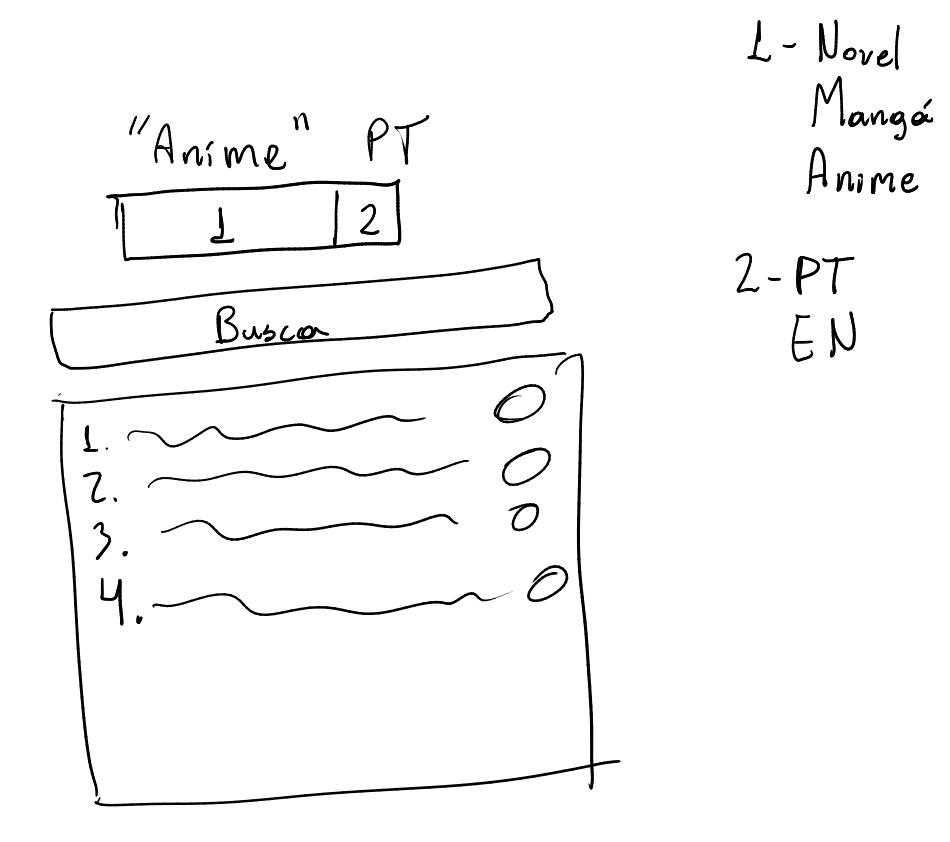 "Anime" PT
1 2
Busca
1.
2.
3.
4.
1 - Novel
Mangá
Anime
2 - PT
EN